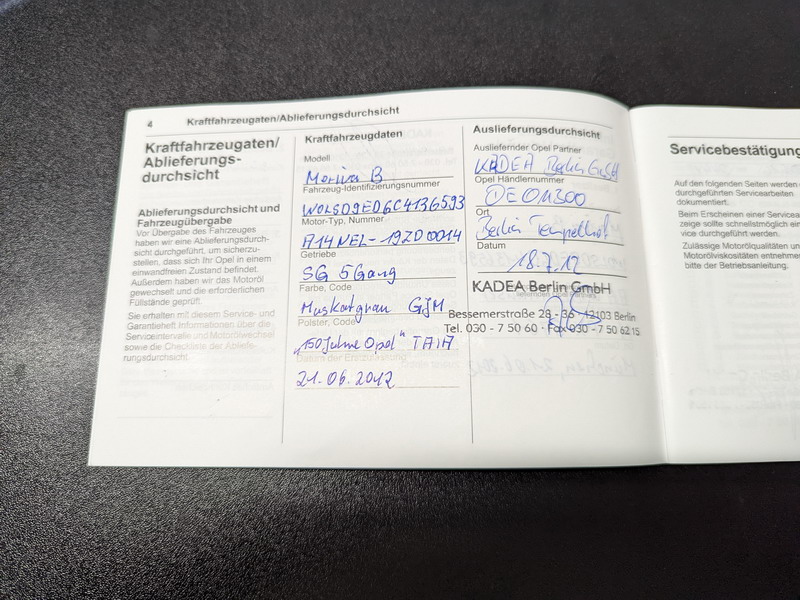 4
Kraftfahrzeugaten/Ablieferungsdurchsicht
Kraftfahrzeugaten/
Ablieferungs-
durchsicht
Ablieferungsdurchsicht und
Fahrzeugübergabe
Vor Übergabe des Fahrzeuges
haben wir eine Ablieferungsdurch-
sicht durchgeführt, um sicherzu-
stellen, dass sich Ihr Opel in einem
einwandfreien Zustand befindet.
Außerdem haben wir das Motoröl
gewechselt und die erforderlichen
Füllstände geprüft.
Sie erhalten mit diesem Service- und
Garantieheft Informationen über die
Serviceintervalle und Motorölwechsel
sowie die Checkliste der Abliefe-
rungsdurchsicht.
Kraftfahrzeugdaten
Modell
Meriva B
Fahrzeug-Identifizierungsnummer
W0LSD9ED6C4136593
Motor-Typ, Nummer
A14NEL-19ZD0014
Getriebe
SG 5Gang
Farbe, Code
Muskatgrau GJM
Polster, Code
„150 Jahre Opel" TAIA
Datum der Erstzulassung
21.06.2012
Auslieferungsdurchsicht
Ausliefernder Opel Partner
KADEA Berlin GmbH
Opel Händlernummer
DE 011300
Ort
Berlin Tempelhof
Datum
18.7.12
KADEA Berlin GmbH
Bessemerstraße 28 - 36 · 12103 Berlin
Tel. 030 - 7 50 60 · Fax 030 - 7 50 62 15
Servicebestätigung
Auf den folgenden Seiten werden
durchgeführten Servicearbeiten
dokumentiert.
Beim Erscheinen einer Servicea
zeige sollte schnellstmöglich ein
vice durchgeführt werden.
Zulässige Motorölqualitäten un
Motorölviskositäten entnehme
bitte der Betriebsanleitung.